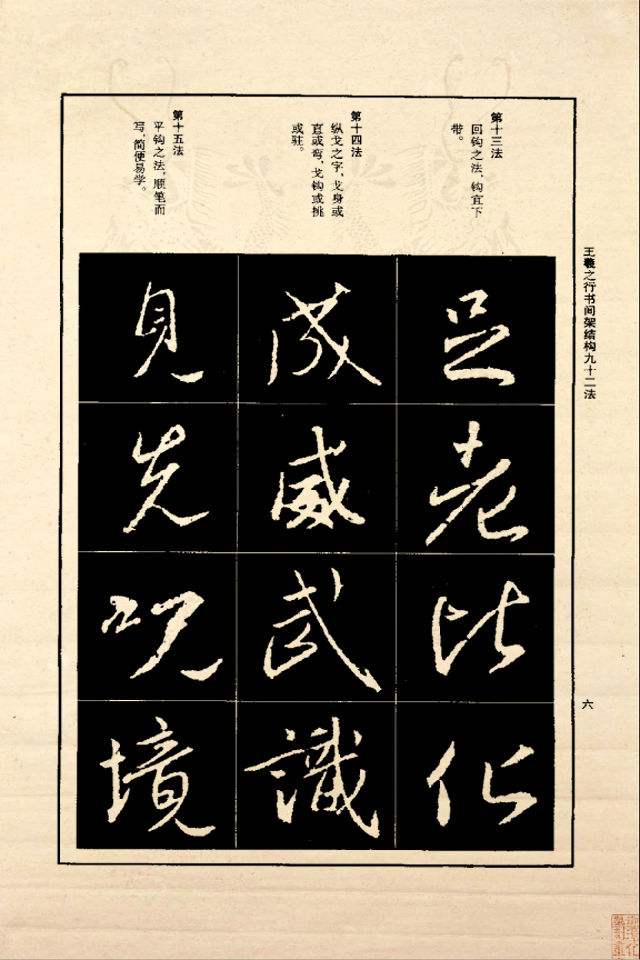 王羲之行书间架结构九十二法
六
第十三法
回钩之法，钩宜下
带。
第十四法
纵戈之字，戈身或
直或弯，戈钩或挑
或驻。
第十五法
平钩之法，顺笔而
写，简便易学。
足
老
比
化
成
威
武
識
見
先
况
境